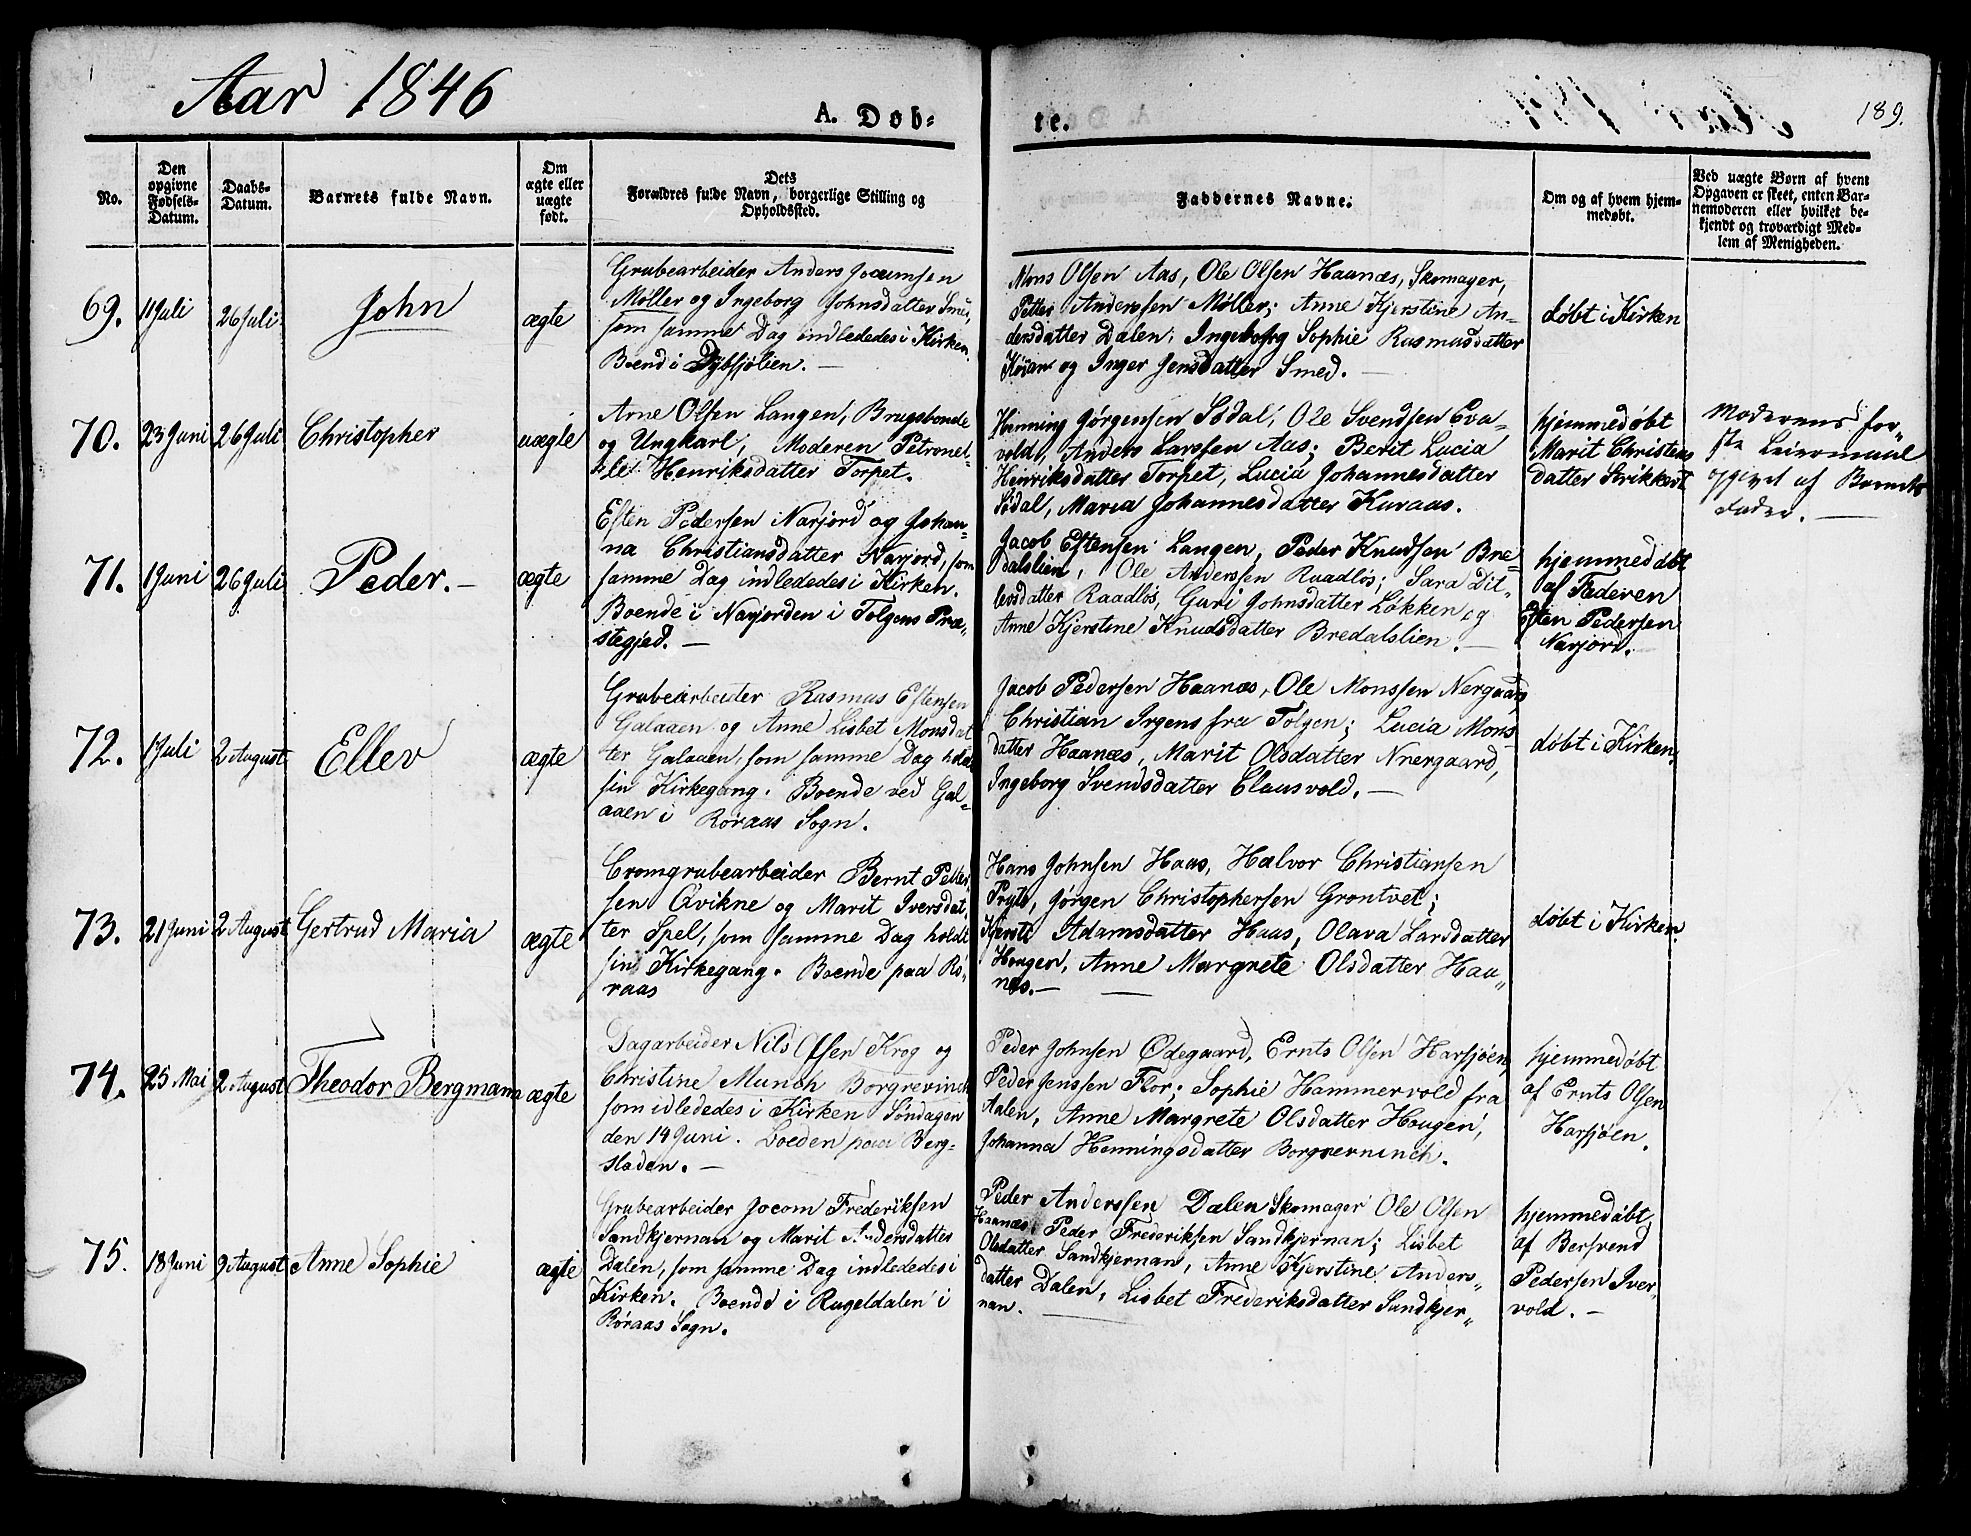 Aar 1846
A. Døb-
te.
189.
No.
Den opgivne Fødsels-Datum.
Daabs-Datum.
Barnets fulde Navn.
Om ægte eller uægte født.
Dets Forældres fulde Navn, borgerlige Stilling og Opholdssted.
Faddernes Navne.
Om og af hvem hjem-medøbt.
Ved uægte Børn af hvem
Opgaven er skeet, enten Bar-
nemoderen eller hvilket be-
kjendt og troværdigt Med-
lem af Menigheden.
69. 11 Juli 26 Juli John ægte
Grubearbeider Anders Jocumsen
Møller og Ingeborg Johnsdatter Smed,
som samme Dag indlededes i Kirken.
Boend i Dybsjølien. —
Mons Olsen Aas, Ole Olsen Haanæs, Skomager,
Petter Anderssen Møller; Anne Kjerstine An-
dersdatter Dalen, Ingeborg Sophie Rasmusdatter
og Inger Jensdatter Smed. —
døbt i Kirken
70. 23 Juni 26 Juli Christopher uægte
Arne Olsen Langen, Brugsbonde
og Ungkarl, Moderen Petronel-
le Henriksdatter Torpet.
Henning Jørgensen Sødal, Ole Svendsen Eva-
vold, Anders Larssen Aas; Berit Lucia
Henriksdatter Torpet, Lucia Johannesdatter
Sødal, Maria Johannesdatter Kuraas.
hjemmedøbt
Marit Christens
datter Strikkert
Moderens for-
ste Leiermaal
opgivet af Barnets
Fader. —
71. 1 Juni 26 Juli Peder. — ægte
Esten Pedersen Narjord og Johan-
na Christiansdatter Narjord, som
samme Dag indlededes i Kirken.
Boende i Narjorden i Tolgens Præ-
stegjed. —
Jacob Estensen Langen, Peder Knudsen Bre-
dalslien, Ole Anderssen Raadløs; Sara Dit-
levsdatter Raadløs, Guri Johnsdatter Løkken og
Anne Kjerstine Knudsdatter Bredalslien. —
hjemmedøbt
af Faderen
Esten Pedersen
Narjord.
72. 1 Juli 2 August Ellev ægte
Grubearbeider Rasmus Estensen
Galaaen og Anne Lisbet Monsdat
ter Galaaen, som samme Dag holdt
sin Kirkegang. Boende ved Gal-
aaen i Røraas Sogn.
Jacob Pedersen Haanæs, Ole Monssen Nergaard
Christian Irgens fra Tolgen; Lucia Mons-
datter Haanæs, Marit Olsdatter Nnergaard,
Ingeborg Svendsdatter Clausvold. —
døbt i Kirken.
73. 21 Juni 2 August Gertrud Maria ægte
Cromgrubearbeider Bernt Petter
sen Qvikne og Marit Iversdat-
ter Spel, som samme Dag holdt
sin Kirkegang. Boende paa Rø-
raas
Hans Johnsen Haas, Halvor Christiansen
Prytz, Jørgen Christophersen Grøntvet;
Kjersti Adamsdatter Haas, Olava Larsdatter
Hougen, Anne Margrete Olsdatter Haa-
næs. —
døbt i Kirken.
74. 25 Mai 2 August Theodor Bergmann ægte
Dagarbeider Nils Olsen Krog og
Christine Munch Borgrevinch
som idlededes i Kirken Søndagen
den 14 Juni. Boeden paa Berg-
staden. —
Peder Johnsen Ødegaard, Ernts Olsen Harsjøen,
Peder Jenssen Flor; Sophie Hammervold fra
Aalen, Anne Margrete Olsdatter Hougen,
Johanna Henningsdatter Borgrevinch.
hjemmedøbt
af Ernts Olsen
Harsjøen.
75. 18 Juni 9 August Anne Sophie ægte
Grubearbeider Jocom Frederiksen
Sandkjernan og Marit Andersdatter
Dalen, som samme Dag indlededes i
Kirken. Boende i Rugeldalen i
Røraas Sogn.
Peder Anderssen Dalen Skomager Ole Olsen
Haanæs, Peder Frederiksen Sandkjernan; Lisbet
Olsdatter Sandkjernan, Anne Kjerstine Anders-
datter Dalen, Lisbet Frederiksdatter Sandkjer-
nan.
hjemmedøbt
af Bersvend
Pedersen Iver-
vold. —